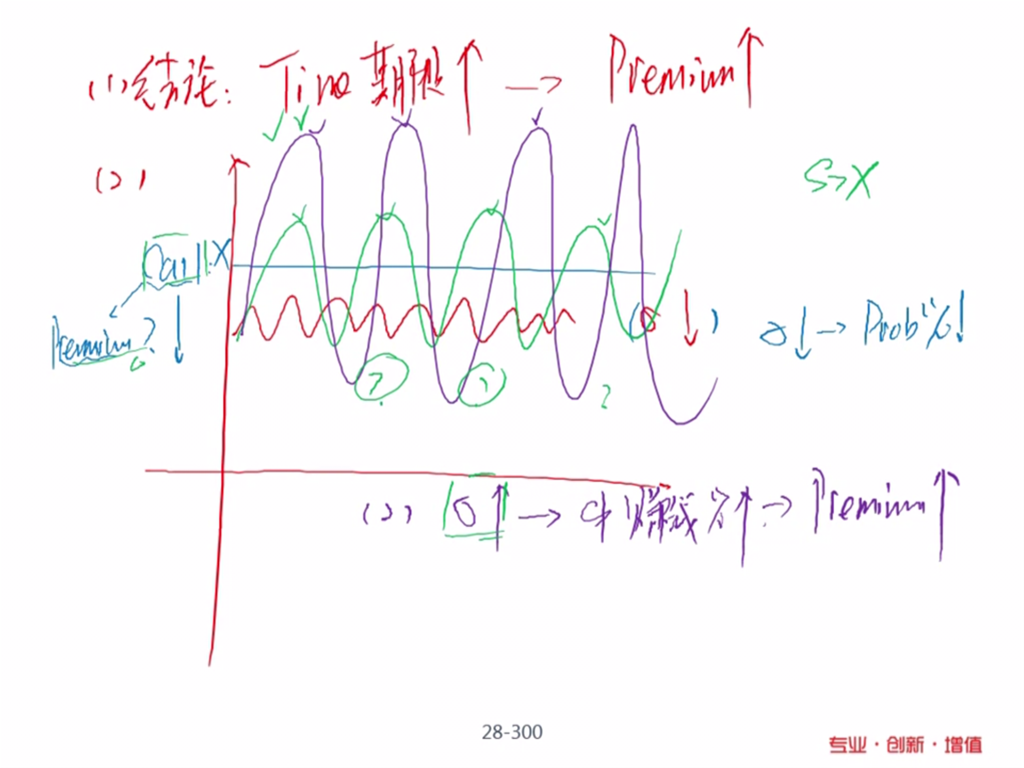 (1)结论: Time 期限↑ → Premium↑
(2)
S>X
Call X
Premium? ↓
(σ↓)
σ↓ → Prob%↓
? ? ?
(2) σ↑ → 中赚钱%↑ → Premium↑
28-300
专业·创新·增值